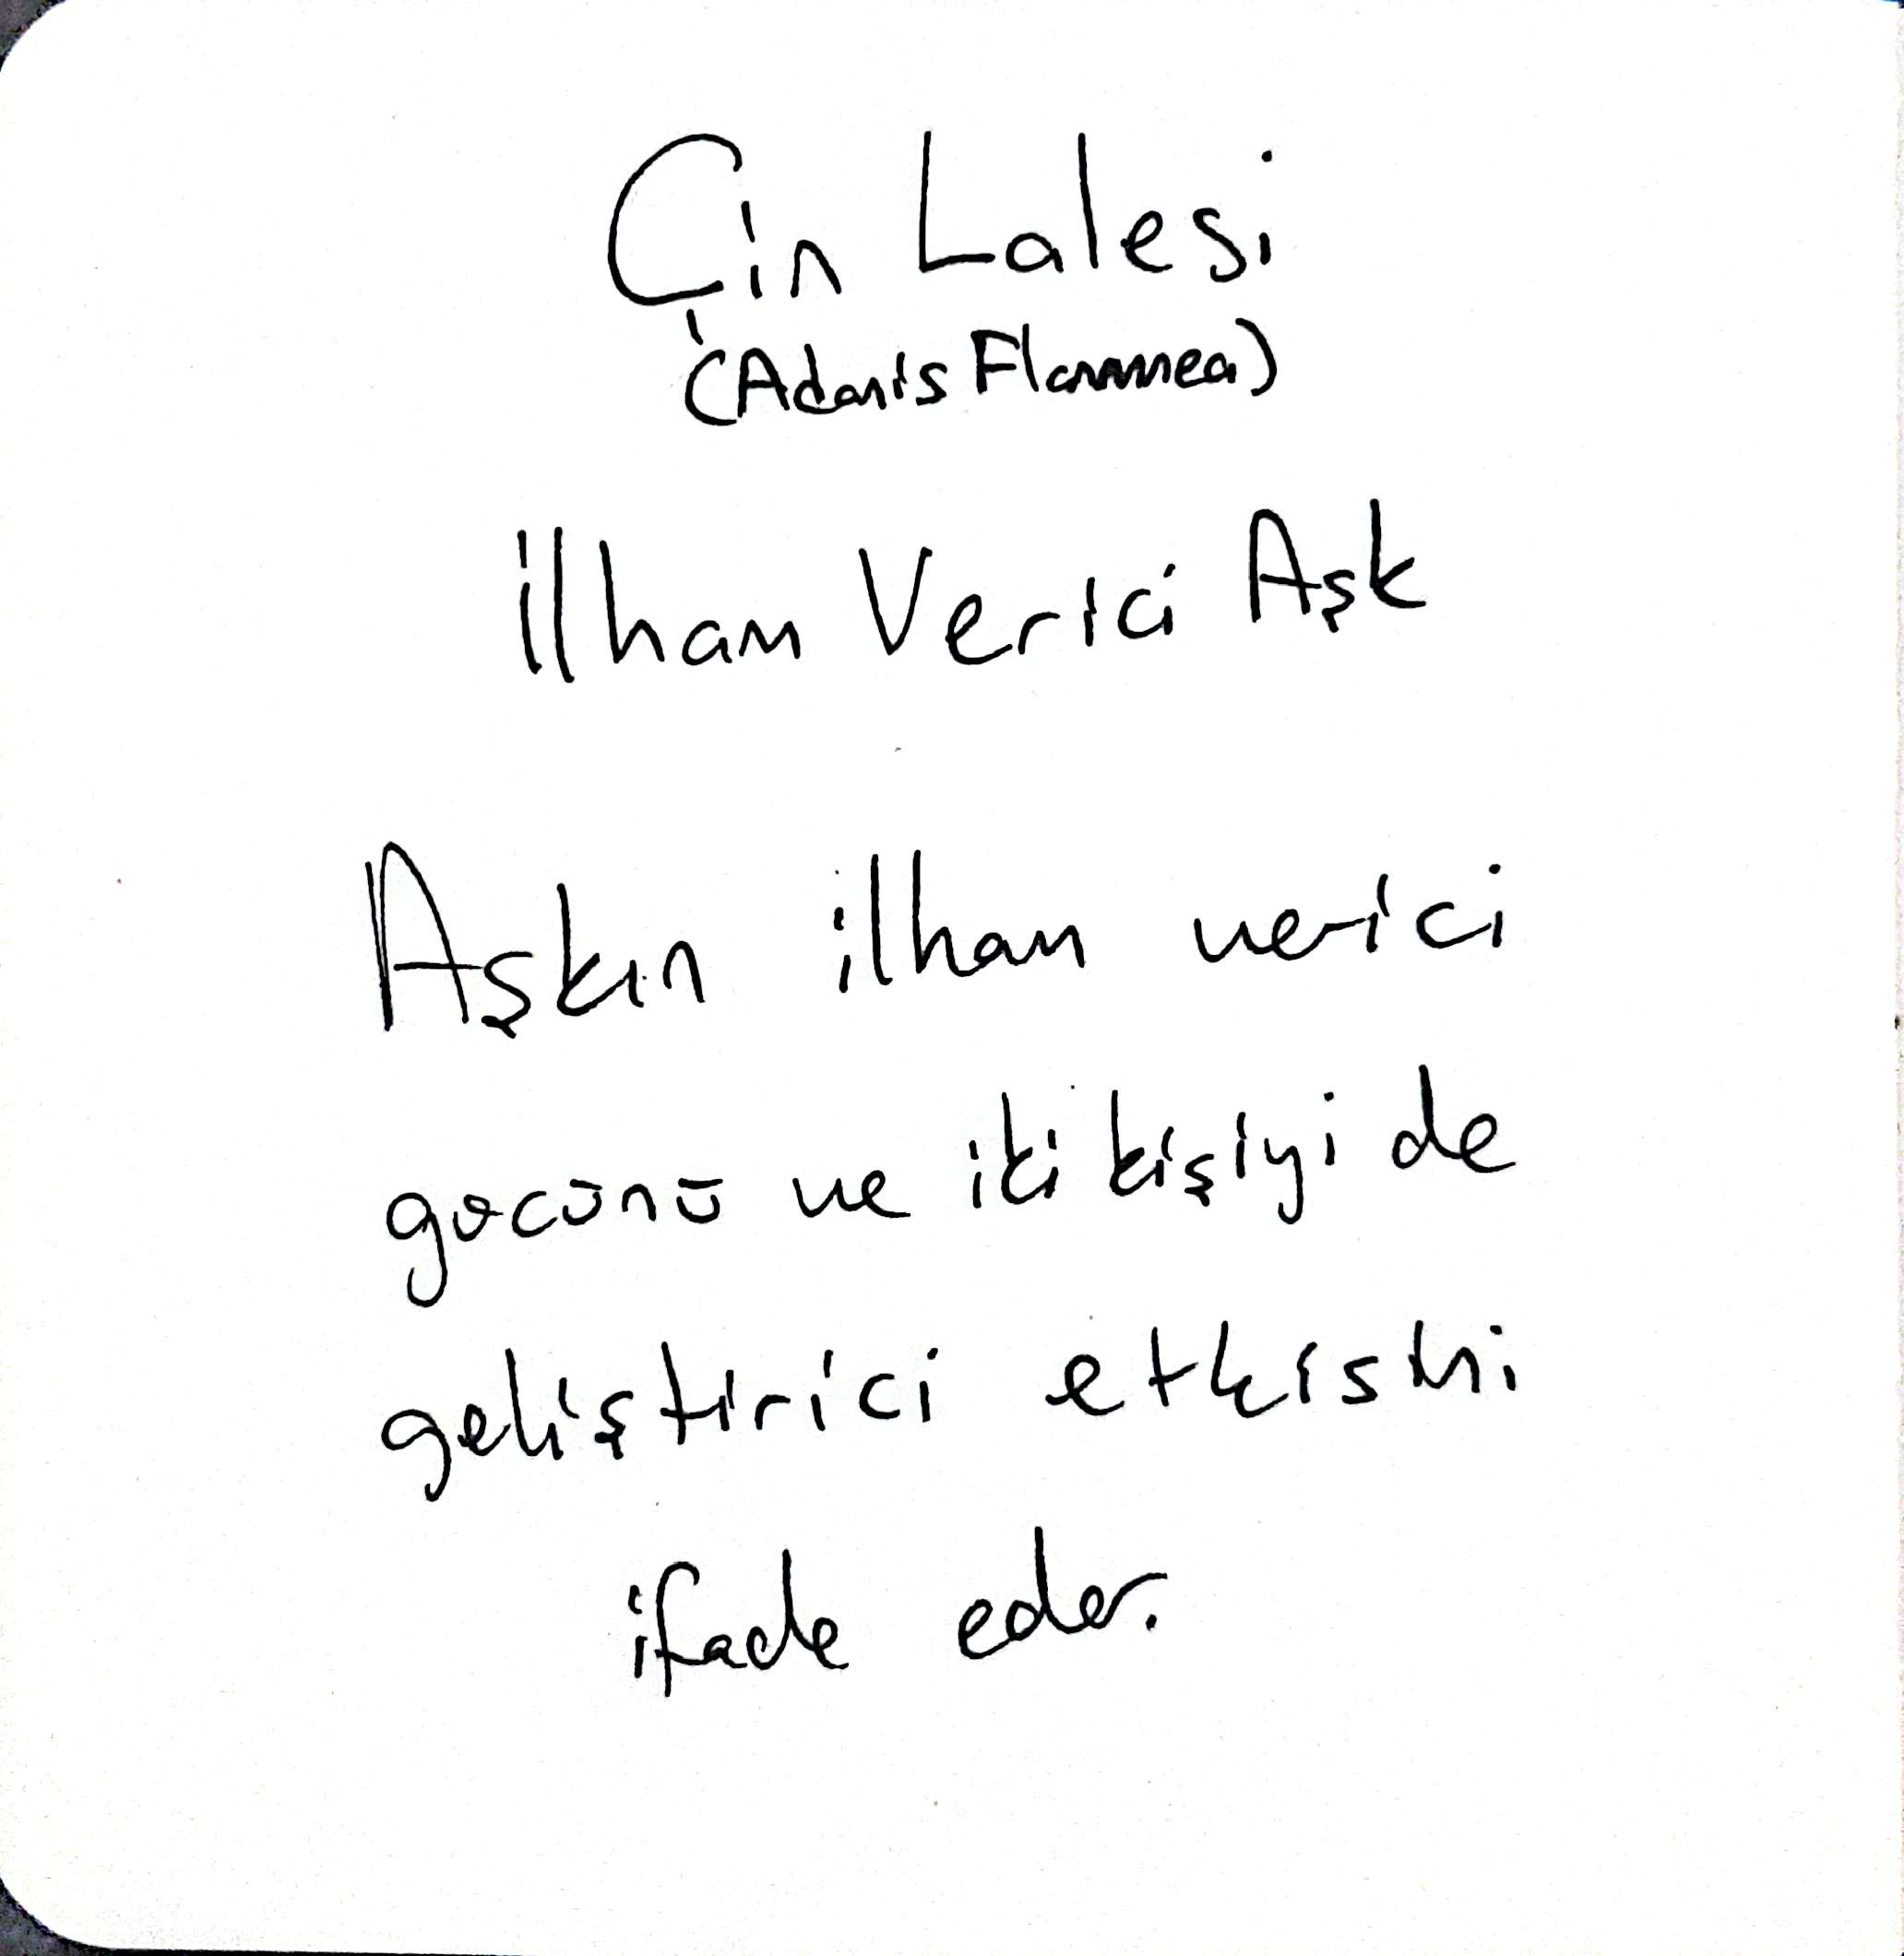 Çin Lalesi
(Adonis Flammea)
İlham Verici Aşk
Aşkın ilham verici
gücünü ve iki kişiyi de
geliştirici etkisini
ifade eder.